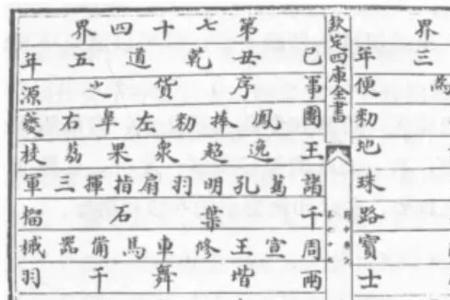 界
三年
便
勑
地
珠
路
寶
士
欽定四庫全書
第七十四界
己丑乾道五年
事序貨之源
團鳳捧勑左皐右夔
王逸超衆果荔枝
諸葛孔明羽扇指揮三軍
千葉石榴
周宣王修車馬備器械
兩堦舞干羽